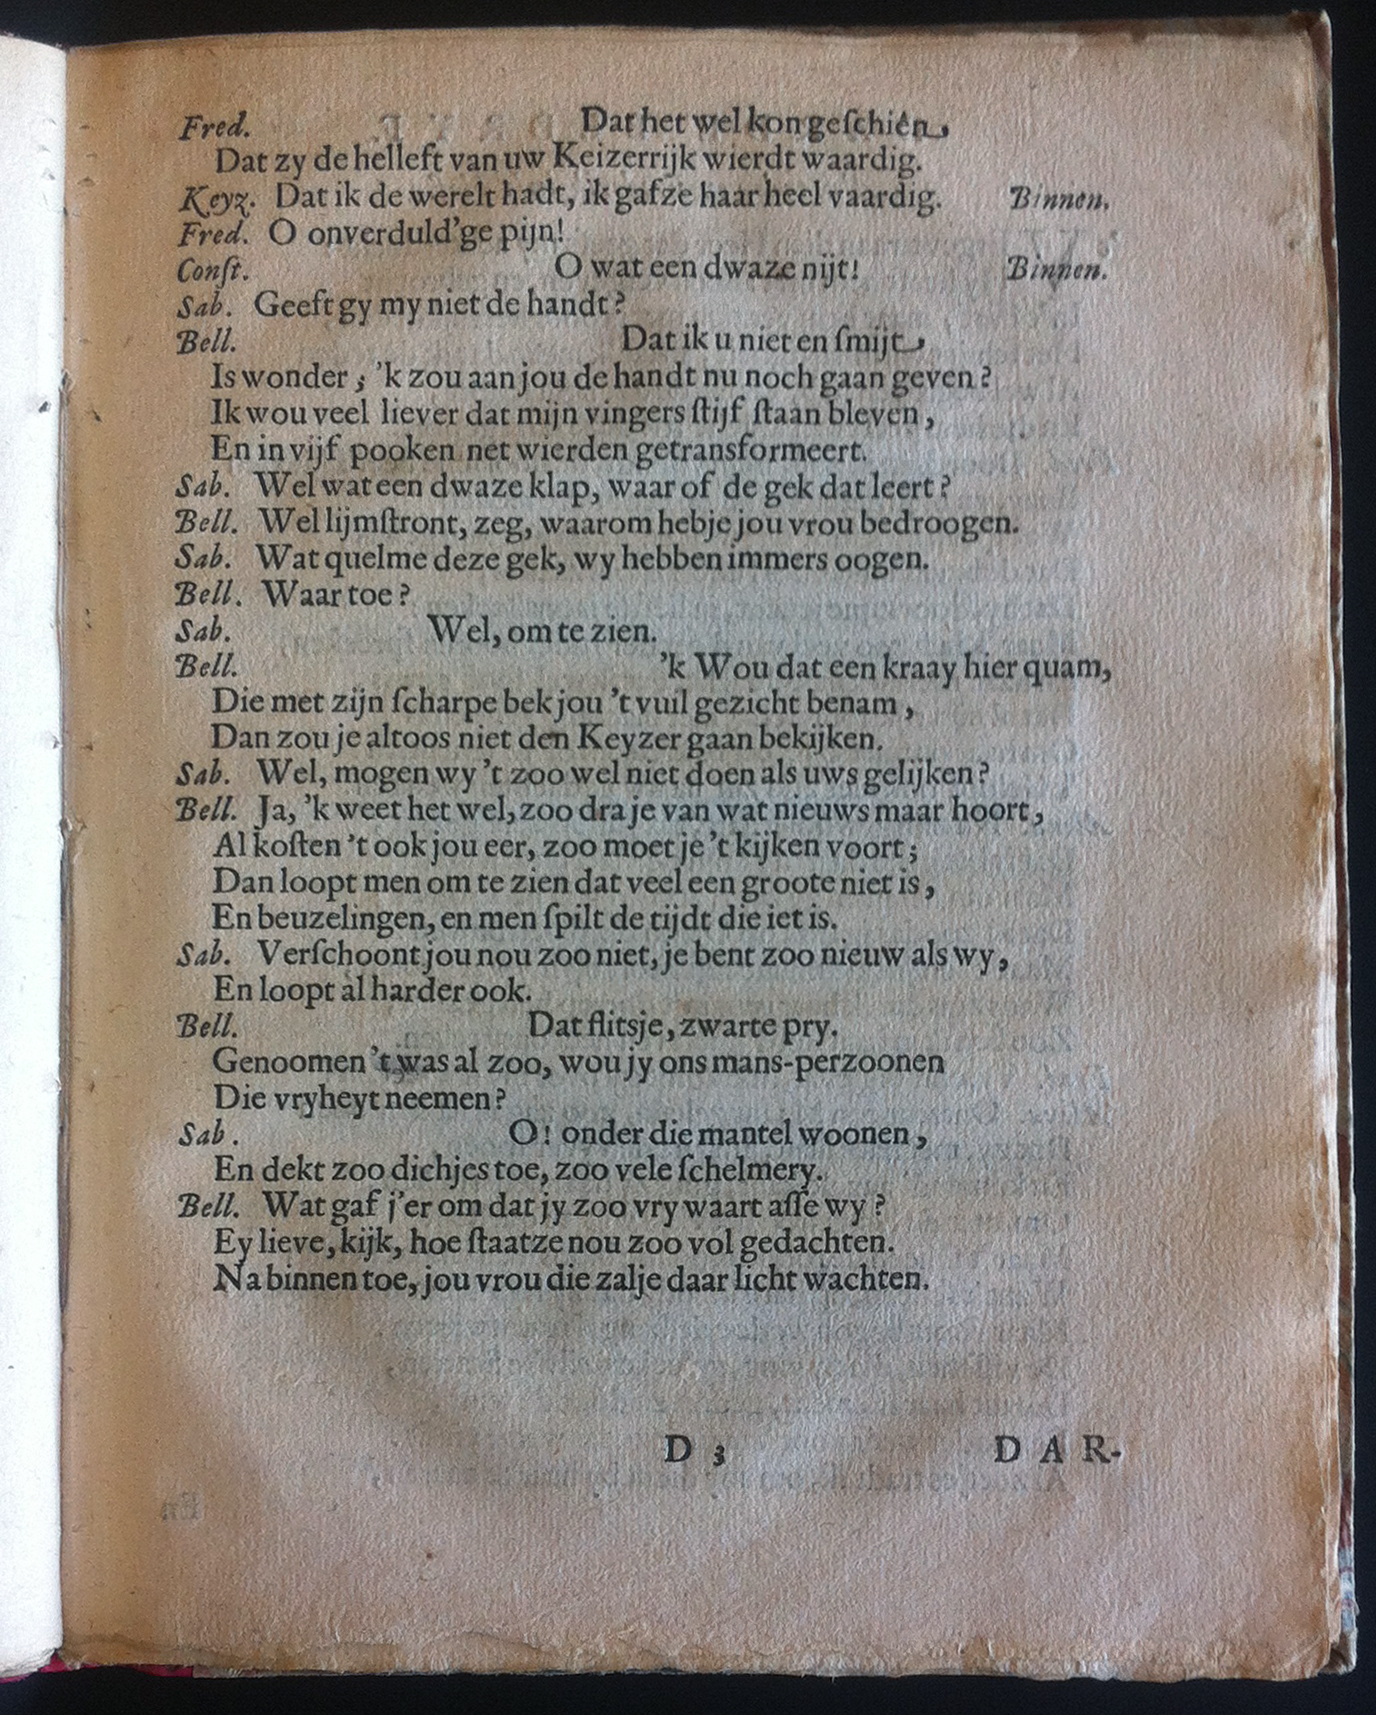 Fred. Dat het wel kon geſchiên,
Dat zy de helleft van uw Keizerrijk wierdt waardig.
Keyz. Dat ik de werelt hadt, ik gafze haar heel vaardig. Binnen.
Fred. O onverduld'ge pijn!
Conſt. O wat een dwaze nijt! Binnen.
Sab. Geeft gy my niet de handt?
Bell. Dat ik u niet en ſmijt,
Is wonder; 'k zou aan jou de handt nu noch gaan geven?
Ik wou veel liever dat mijn vingers ſtijf ſtaan bleven,
En in vijf pooken net wierden getransformeert.
Sab. Wel wat een dwaze klap, waar of de gek dat leert?
Bell. Wel lijmſtront, zeg, waarom hebje jou vrou bedroogen.
Sab. Wat quelme deze gek, wy hebben immers oogen.
Bell. Waar toe?
Sab. Wel, om te zien.
Bell. 'k Wou dat een kraay hier quam,
Die met zijn ſcharpe bek jou 't vuil gezicht benam,
Dan zou je altoos niet den Keyzer gaan bekijken.
Sab. Wel, mogen wy 't zoo wel niet doen als uws gelijken?
Bell. Ja, 'k weet het wel, zoo dra je van wat nieuws maar hoort,
Al koſten 't ook jou eer, zoo moet je 't kijken voort;
Dan loopt men om te zien dat veel een groote niet is,
En beuzelingen, en men ſpilt de tijdt die iet is.
Sab. Verſchoont jou nou zoo niet, je bent zoo nieuw als wy,
En loopt al harder ook.
Bell. Dat flitsje, zwarte pry.
Genoomen 't was al zoo, wou jy ons mans-perzoonen
Die vryheyt neemen?
Sab. O! onder die mantel woonen,
En dekt zoo dichjes toe, zoo vele ſchelmery.
Bell. Wat gaf j'er om dat jy zoo vry waart aſſe wy?
Ey lieve, kijk, hoe ſtaatze nou zoo vol gedachten.
Na binnen toe, jou vrou die zalje daar licht wachten.
D 3 DAR-